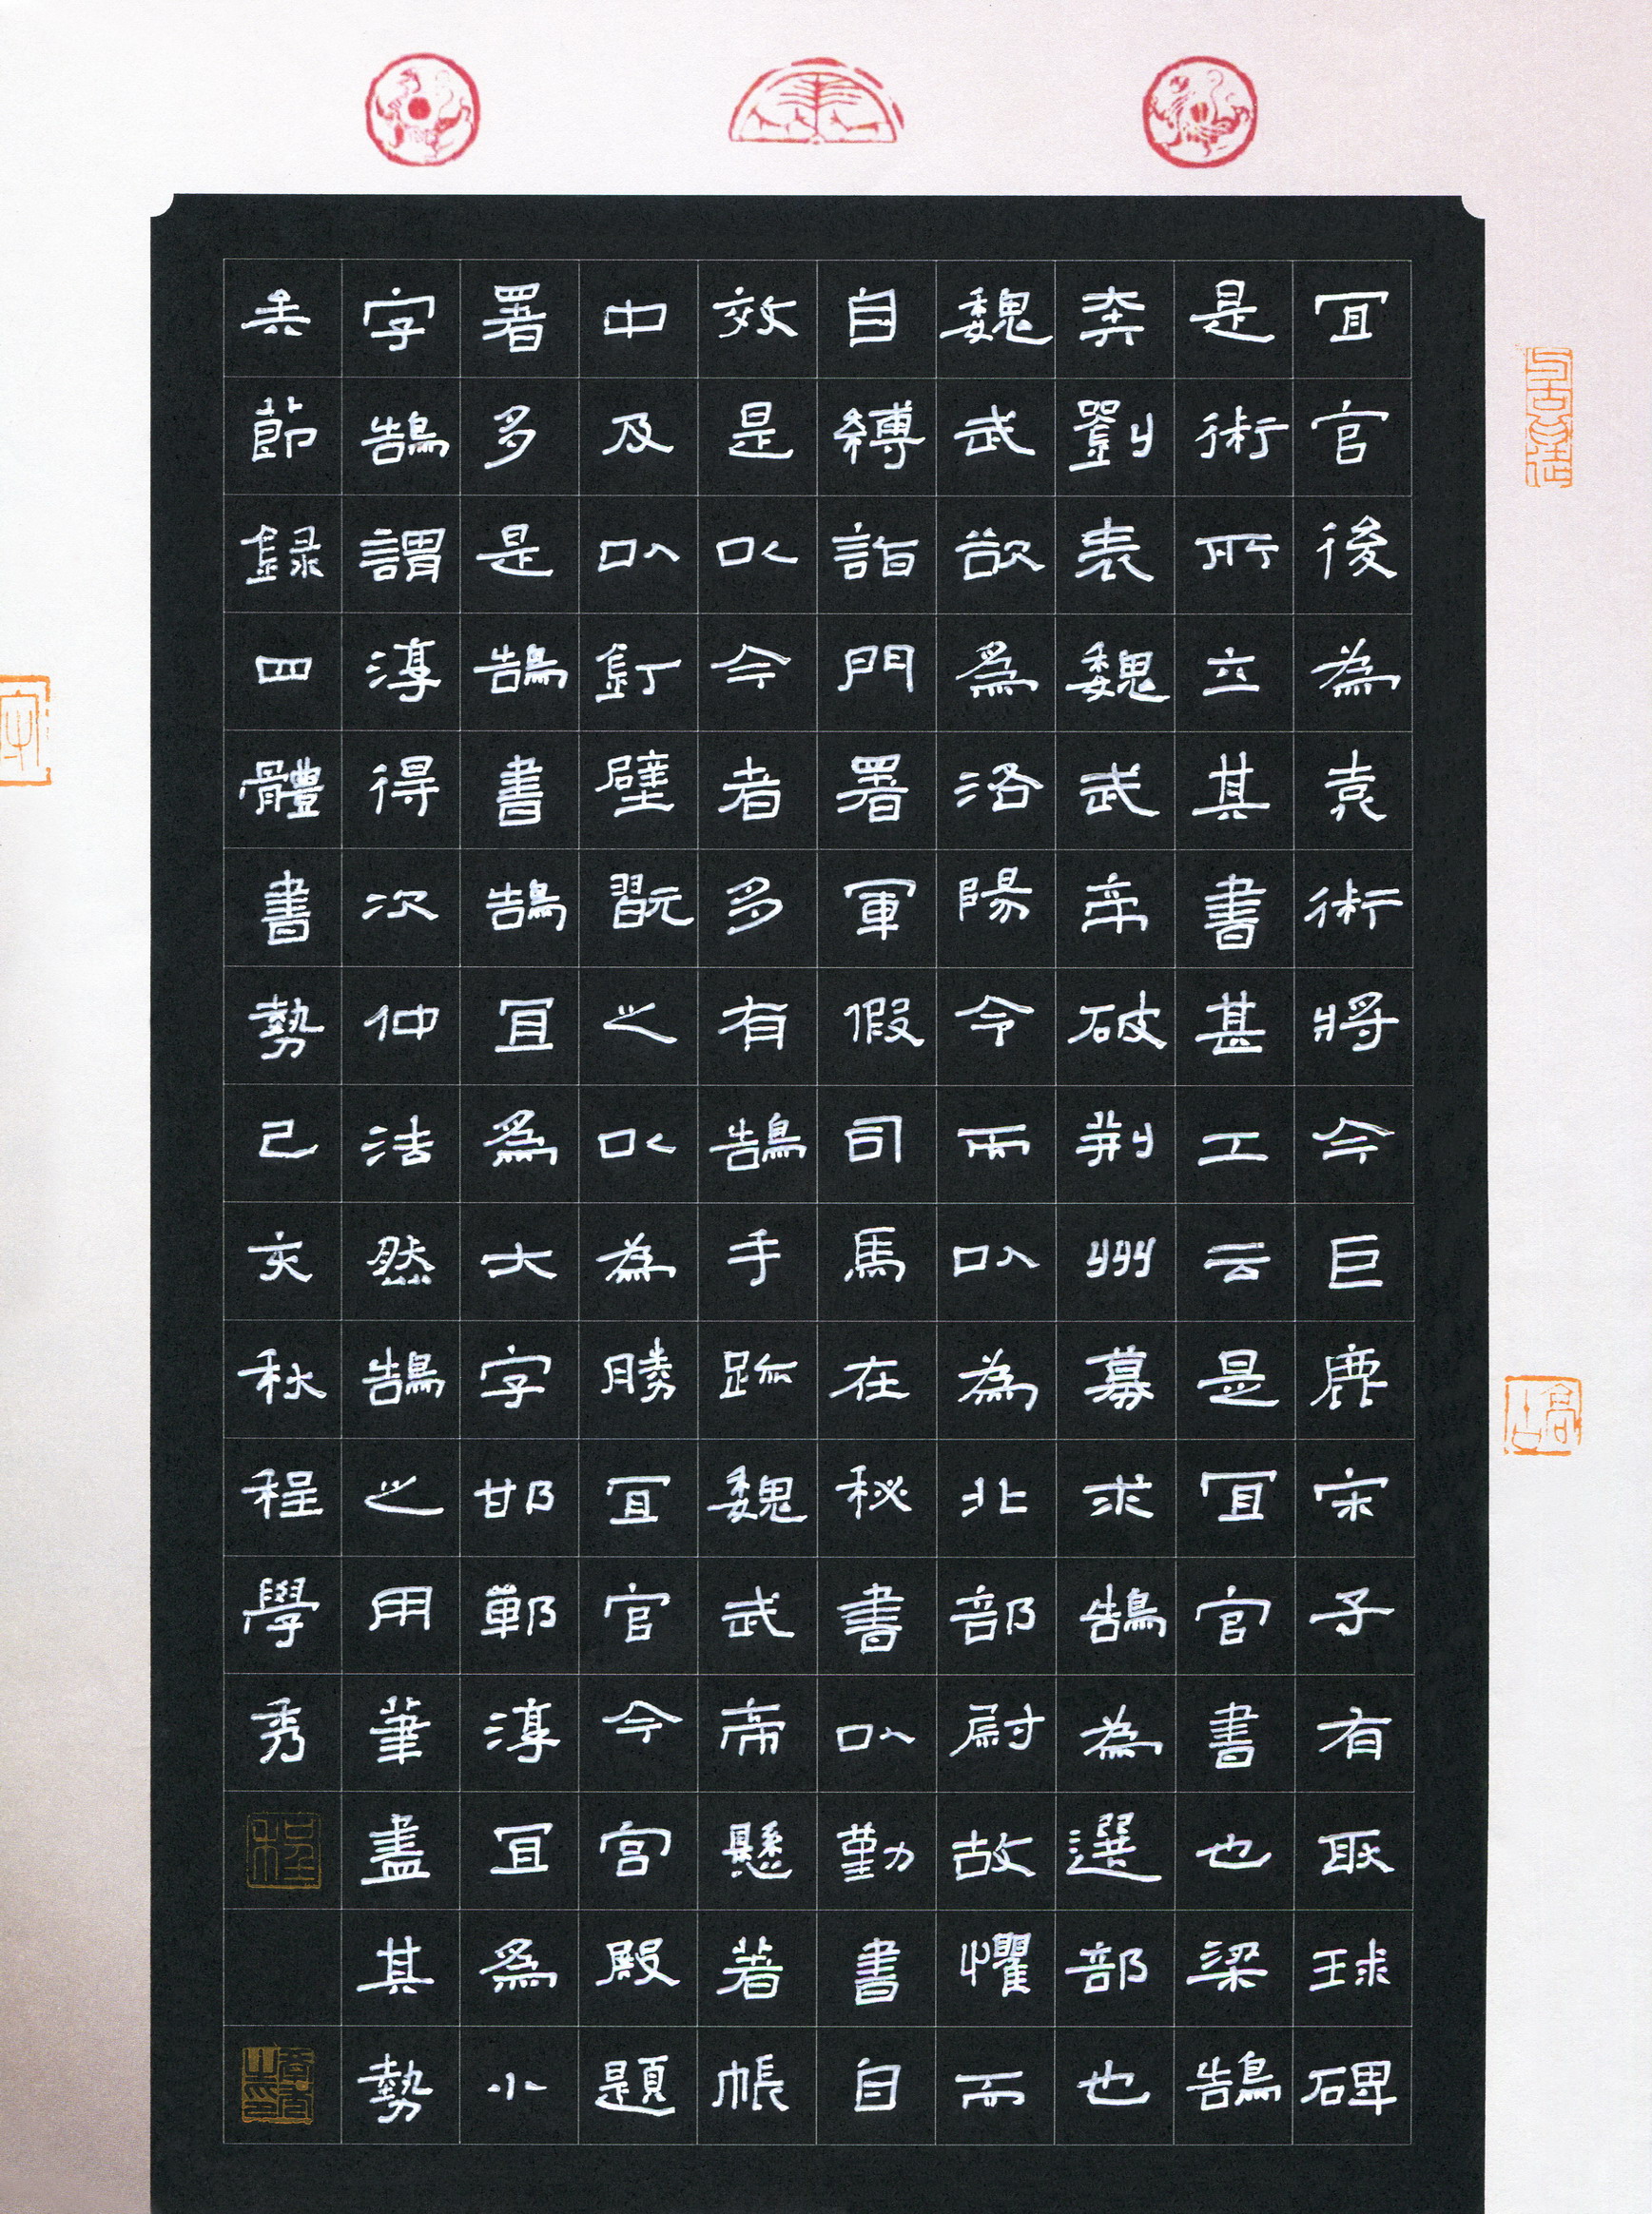 宜官後為袁術將今巨鹿宋子有耿球碑
是術所立其書甚工云是宜官書也梁鵠
奔劉表魏武帝破荊州募求鵠為選部也
魏武欲為洛陽令而以為北部尉故懼而
自縛詣門署軍假司馬在秘書以勤書自
效是以今者多有鵠手跡魏武帝懸著帳
中及以釘壁翫之以為勝宜官今宮殿題
署多是鵠書鵠宜為大字邯鄲淳宜為小
字鵠謂淳得次仲法然鵠之用筆盡其勢
矣節録四體書勢己亥秋程學秀